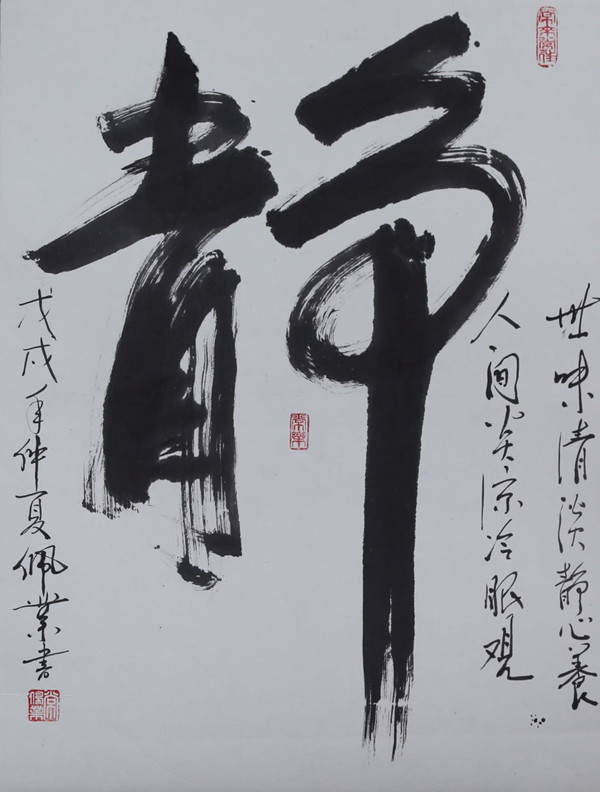 静
世味清淡静心养
人间炎凉冷眼观
戊戌年仲夏佩业书